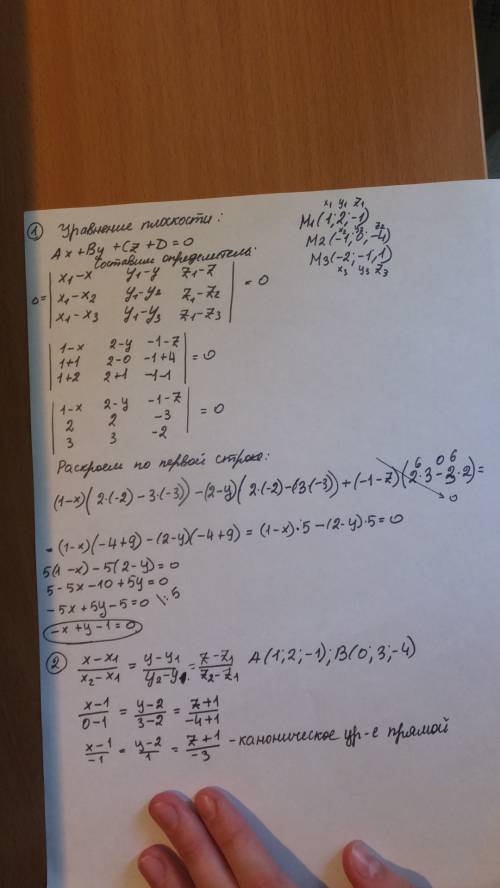 ① Уравнение плоскости:
Ax + By + Cz + D = 0
x₁ y₁ z₁
M1(1; 2; -1)
x₂ y₂ z₂
M2(-1; 0; -4)
M3(-2; -1, 1)
x₃ y₃ z₃
Составим определитель:
0 = | x₁-x y₁-y z₁-z |
| x₁-x₂ y₁-y₂ z₁-z₂ | = 0
| x₁-x₃ y₁-y₃ z₁-z₃ |
| 1-x 2-y -1-z |
| 1+1 2-0 -1+4 | = 0
| 1+2 2+1 -1-1 |
| 1-x 2-y -1-z |
| 2 2 -3 | = 0
| 3 3 -2 |
Раскроем по первой строке:
6 0 6
(1-x)(2·(-2) - 3·(-3)) - (2-y)(2·(-2) - (3·(-3)) + (-1-z)(2·3 - 3·2) =
0
= (1-x)(-4+9) - (2-y)(-4+9) = (1-x)·5 - (2-y)·5 = 0
5(1-x) - 5(2-y) = 0
5 - 5x - 10 + 5y = 0
-5x + 5y - 5 = 0 \: 5
-x + y - 1 = 0
② (x-x₁)/(x₂-x₁) = (y-y₁)/(y₂-y₁) = (z-z₁)/(z₂-z₁) A(1; 2; -1); B(0; 3; -4)
(x-1)/(0-1) = (y-2)/(3-2) = (z+1)/(-4+1)
(x-1)/(-1) = (y-2)/1 = (z+1)/(-3) - каноническое ур-е прямой